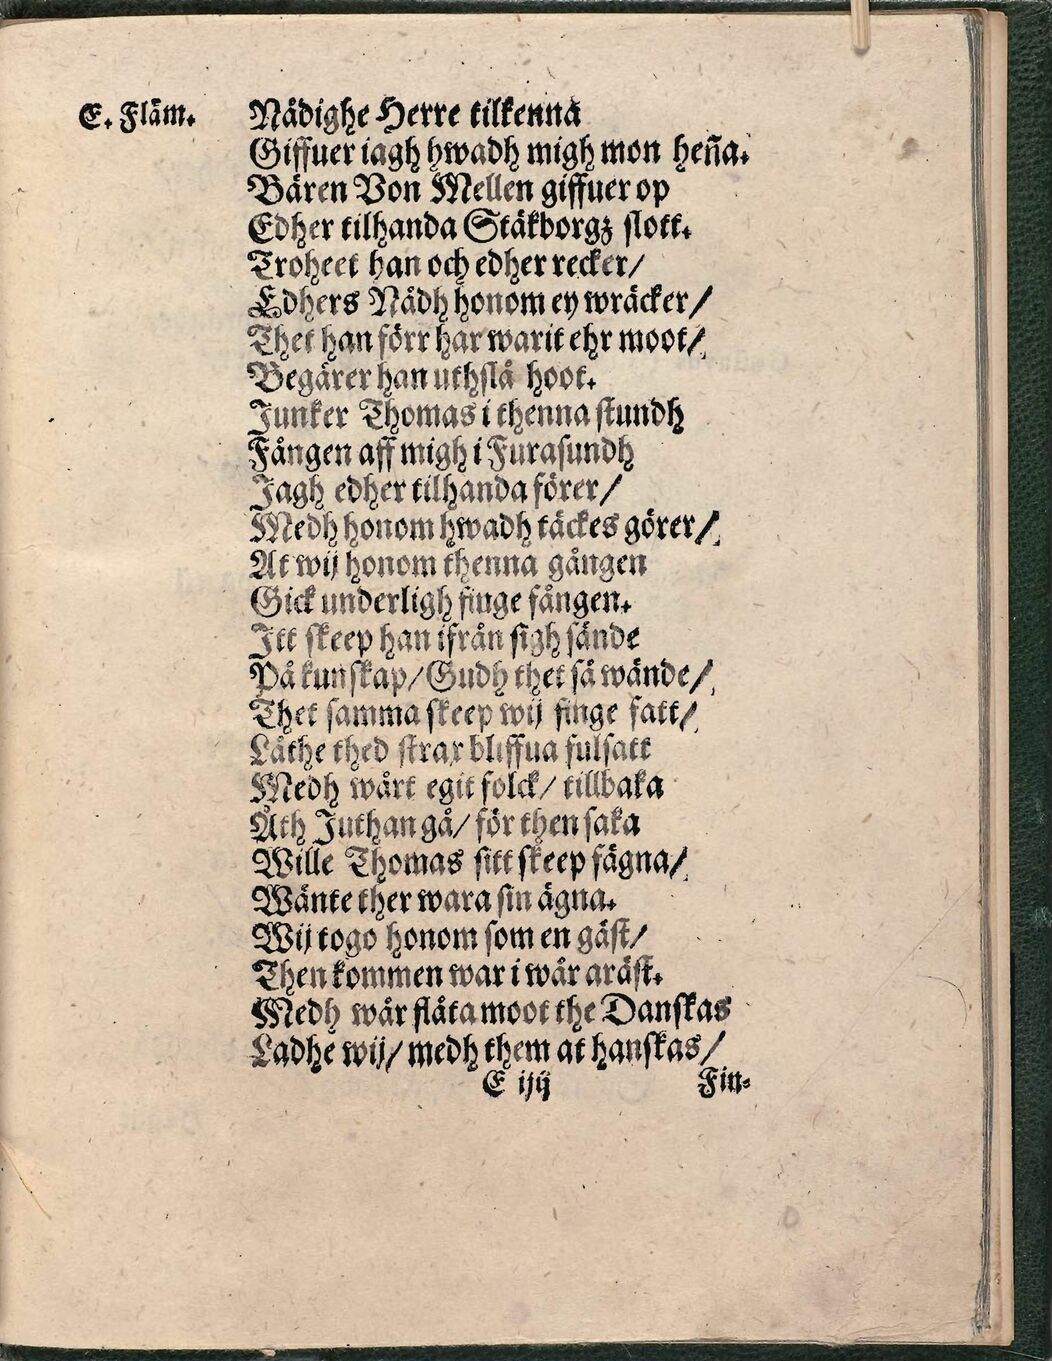 E. Fläm. Nådighe Herre tilkenna
Giffuer iagh hwadh migh mon heña.
Bären Von Mellen giffuer op
Edher tilhanda Stäkborgz slott.
Troheet han och edher recker/
Edhers Nådh honom ey wräcker/
Thet han förr har warit ehr moot/
Begärer han uthslå hoot.
Junker Thomas i thenna stundh
Fången aff migh i Furasundh
Jagh edher tilhanda förer/
Medh honom hwadh täckes görer/
At wij honom thenna gången
Gick underligh finge fången.
Itt skeep han ifrån sigh sände
På kunskap/ Gudh thet så wände/
Thet samma skeep wij finge fatt/
Låthe thed strax bliffua fulsatt
Medh wårt egit folck/ tillbaka
Åth Juthan gå/ för then saka
Wille Thomas sitt skeep fägna/
Wänte ther wara sin ägna.
Wij togo honom som en gäst/
Then kommen war i wår aräst.
Medh wår flåta moot the Danskas
Ladhe wij/ medh them at hanskas/
E iij Fin-